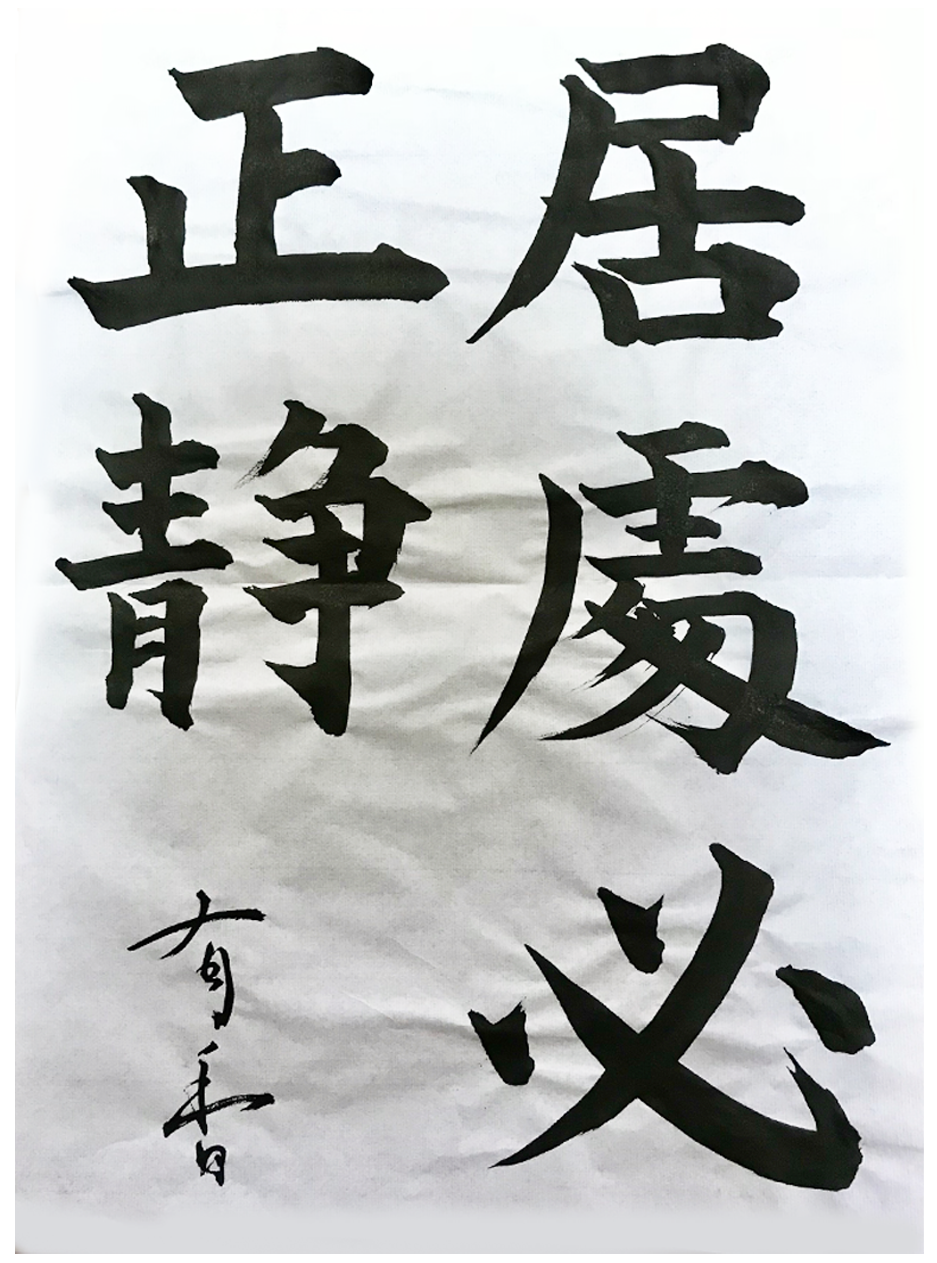 居處必
正静
有香